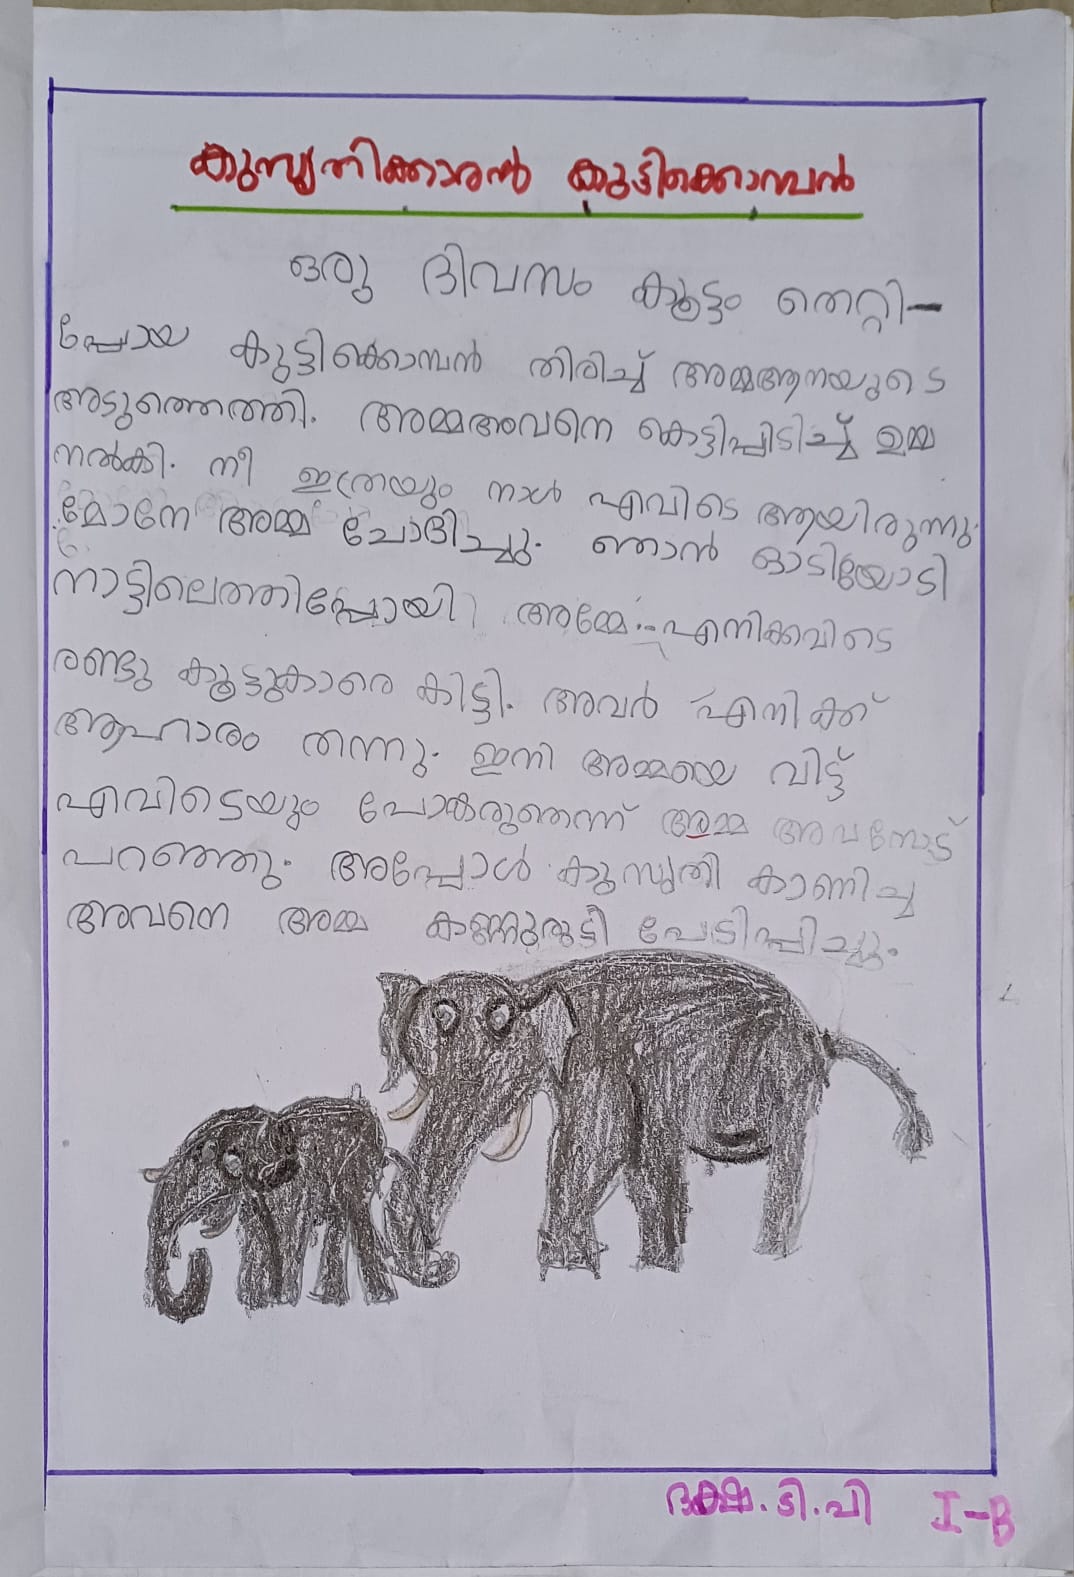 കുസൃതിക്കാരൻ കുട്ടിക്കൊമ്പൻ
ഒരു ദിവസം കൂട്ടം തെറ്റി-
പ്പോയ കുട്ടിക്കൊമ്പൻ തിരിച്ച് അമ്മആനയുടെ
അടുത്തെത്തി. അമ്മഅവനെ കെട്ടിപ്പിടിച്ച് ഉമ്മ
നൽകി. നീ ഇത്രയും നാൾ എവിടെ ആയിരുന്നു
മോനേ അമ്മ ചോദിച്ചു. ഞാൻ ഓടിയോടി
നാട്ടിലെത്തിപ്പോയി അമ്മേ... എനിക്കവിടെ
രണ്ടു കൂട്ടുകാരെ കിട്ടി. അവർ എനിക്ക്
ആഹാരം തന്നു. ഇനി അമ്മയെ വിട്ട്
എവിടെയും പോകരുതെന്ന് അമ്മ അവനോട്
പറഞ്ഞു. അപ്പോൾ കുസൃതി കാണിച്ച
അവനെ അമ്മ കണ്ണുരുട്ടി പേടിപ്പിച്ചു.
ദക്ഷ. ടി. പി I-B